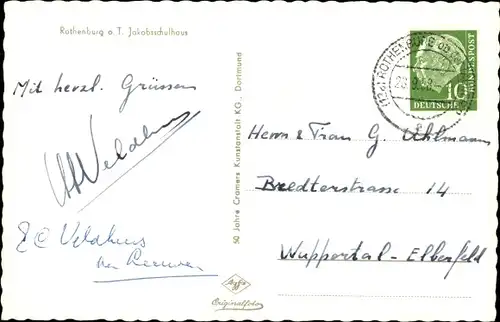 Rothenburg o. T. Jakobsschulhaus
Mit herzl. Grüssen
Veldhuis
E C Veldhuis
van Leeuwen
50 Jahre Cramers Kunstanstalt KG., Dortmund
Agfa
Originalfoto
ROTHENBURG OB
10
BUNDESPOST
DEUTSCHE
Herrn & Frau G. Uhlmann
Bredterstrasse 14
Wuppertal-Elberfeld